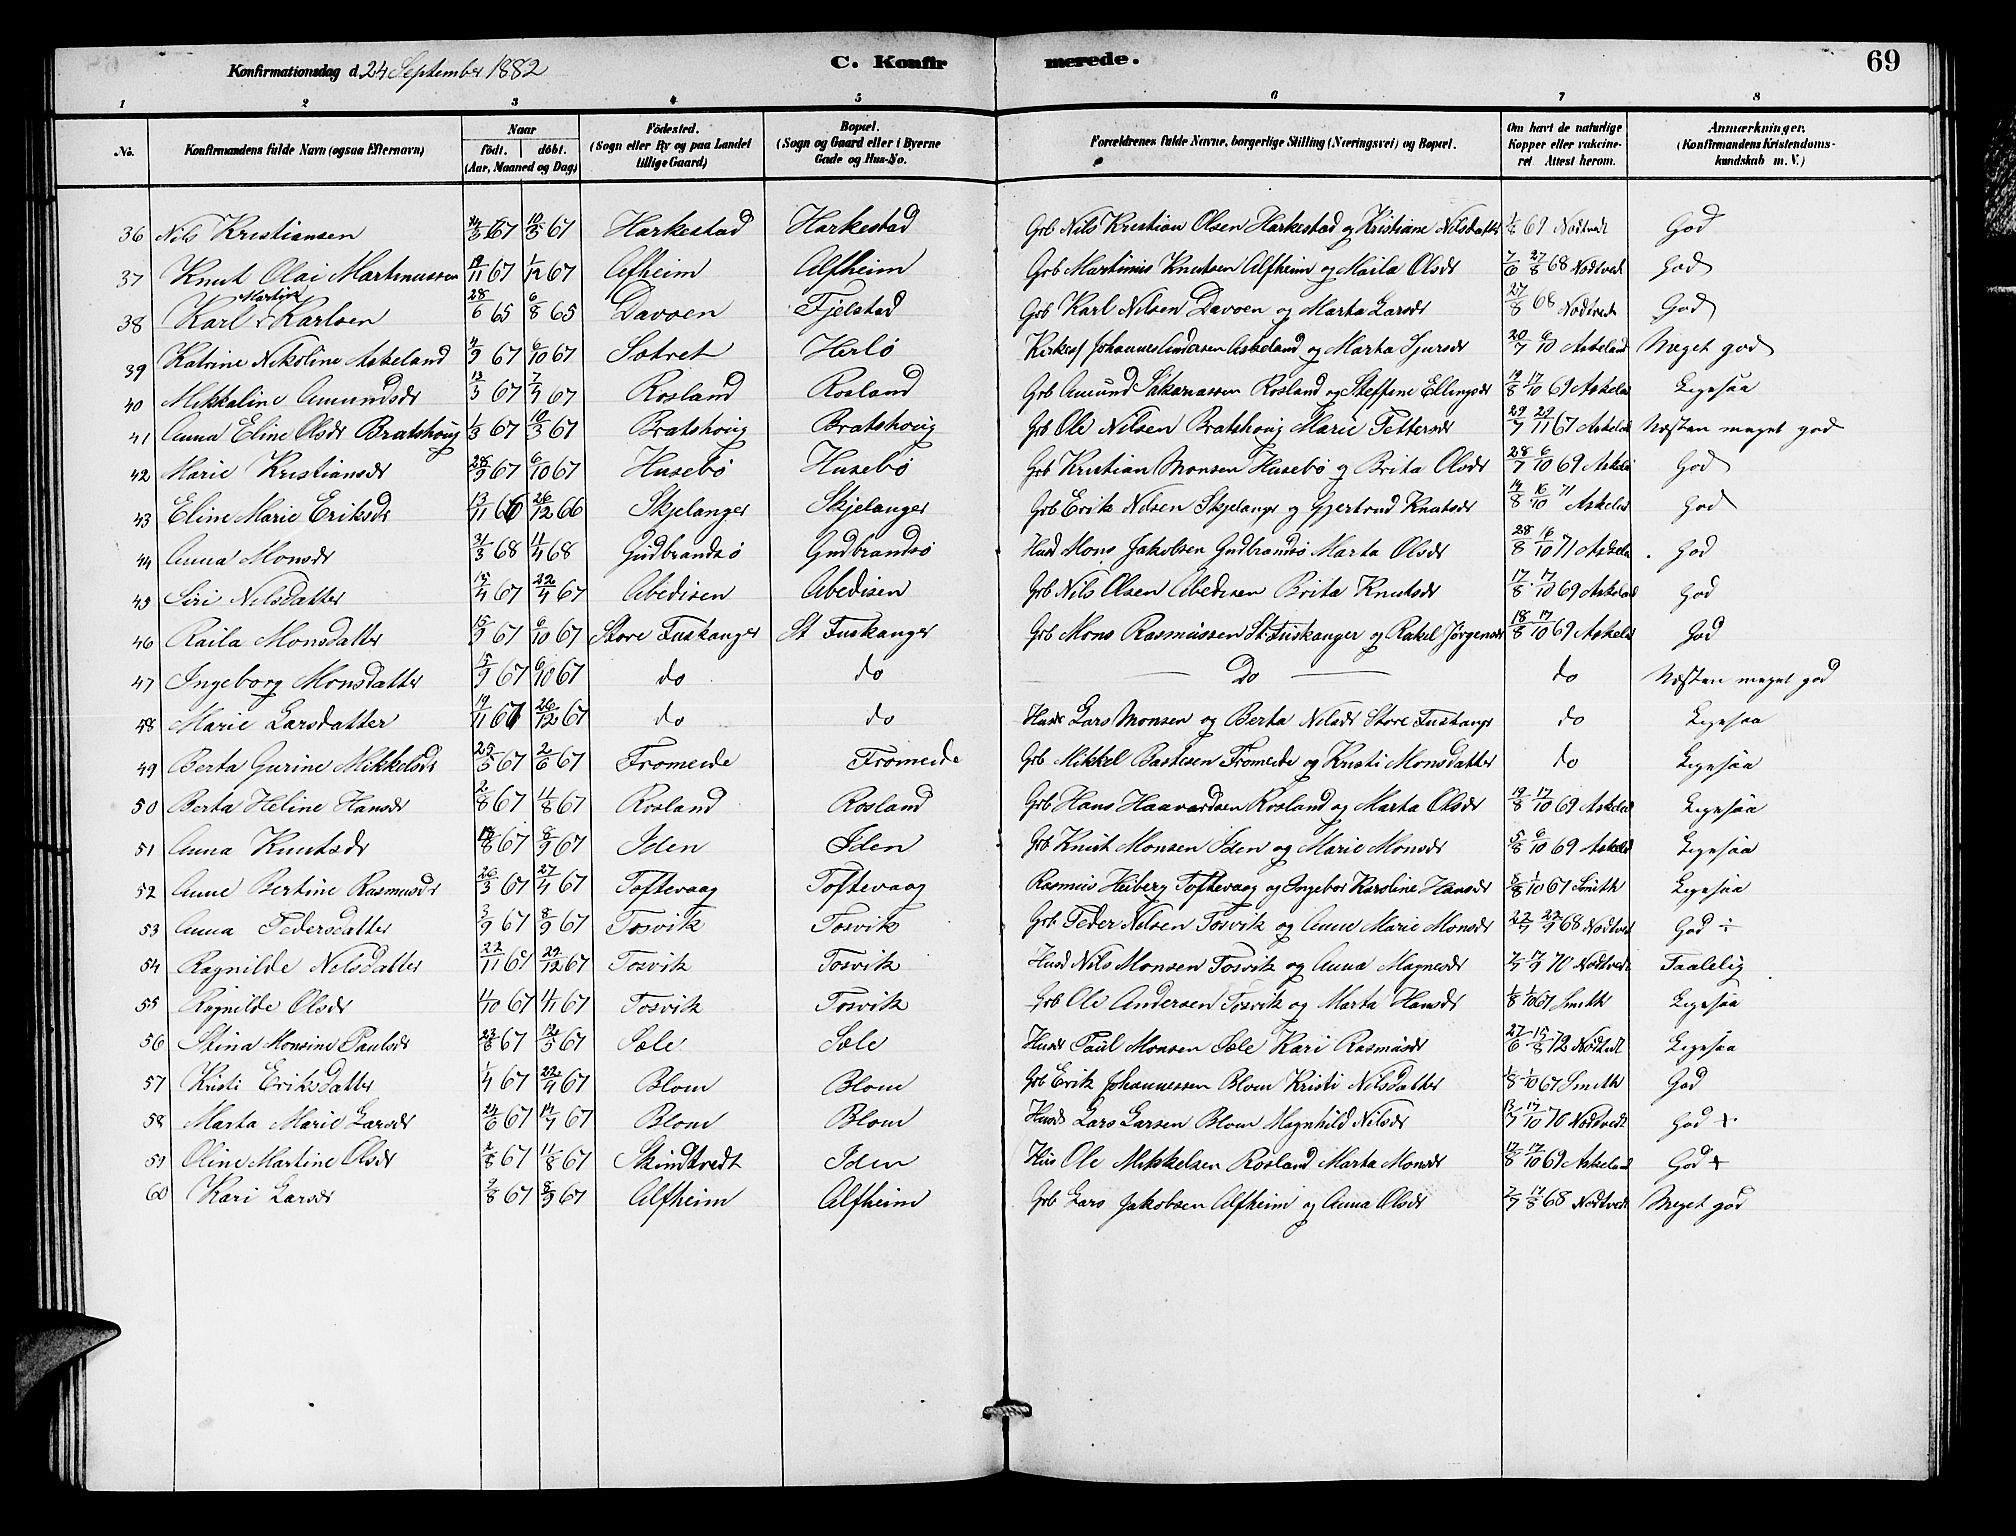 Konfirmationsdag d. 24 September 1882 C. Konfirmerede. 69
1 2 3 4 5 6 7 8
No. Konfirmandens fulde Navn (ogsaa Efternavn) Naar födt. döbt. (Aar, Maaned og Dag) Födested. (Sogn eller By og paa Landet tillige Gaard) Bopæl. (Sogn og Gaard eller i Byerne Gade og Hus-No. Forældrenes fulde Navne, borgerlige Stilling (Næringsvei) og Bopæl. Om havt de naturlige Kopper eller vakcineret Attest herom. Anmærkninger. (Konfirmandens Kristendomskundskab m. V.)
36 Nils Kristiansen 67 10/3 67 Harkestad Harkestad Grb Nils Kristian Olsen Harkestad og Kristiane Nilsdatter 69 Nodtvedt God
37 Knut Olai Martinussen 19/11 67 1/12 67 Alfheim Alfheim Grb Martinus Knutsen Alfheim og Maila Olsdr 7/6 27/8 68 Nodtvedt God
38 Karl Martin Karlsen 28/6 65 6/8 65 Davoen Fjelstad Grb Karl Nilsen Davoen og Marta Larsdr 27/8 68 Nodtvedt God
39 Katrine Nikoline Askeland 4/9 67 6/10 67 Sotret Herlö Kirkesr Johannes Andersen Askeland og Marta Sjursdr 20/7 6/10 Askeland Meget god
40 Mikkaline Amundsdr 13/3 67 7/4 67 Rosland Rosland Grb Amund Sakariassen Rosland og Steffine Ellingsdr 19/8 17/10 69 Askelad Ligesaa
41 Anna Eline Olsdr Bratshoug 1/3 67 10/3 67 Bratshoug Bratshoug Grb Ole Nilsen Bratshoug Marie Pettersdr 29/7 29/11 67 Askelad Næsten meget god
42 Marie Kristiansdr 28/9 67 6/10 67 Husebö Husebö Grb Kristian Monsen Husebö og Brita Olsdr 28/7 6/10 69 Askela God
43 Eline Marie Eriksdr 13/11 66 26/12 66 Skjelanger Skjelanger Grb Erik Nilsen Skjelanger og Gjertrud Knutsdr 14/8 16/10 71 Askelad God
44 Anna Monsdr 31/3 68 11/4 68 Gudbrandsö Gudbrandsö Husd Mons Jakobsen Gudbrandsö Marta Olsdr 28/8 16/10 71 Askela God
45 Siri Nilsdatter 15/4 67 22/4 67 Abedisen Abedisen Grb Nils Olsen Abedisen Brita Knutsdr 17/8 17/10 69 Askelad God
46 Raila Monsdatter 15/9 67 6/10 67 Store Fuskanger St Fuskanger Grb Mons Rasmussen St. Fuskanger og Rakel Jörgensdr 18/8 17/10 69 Askelad God
47 Ingeborg Monsdatter 15/9 67 6/10 67 do do Do do Næsten meget god
48 Marie Larsdatter 19/11 67 26/12 67 do do Husd Lars Monsen og Berta Nilsdr Store Fuskangr do Ligesaa
49 Berta Gurine Mikkelsdr 25/5 67 2/6 67 Fromreide Fromreide Grb Mikkel Bastesen Fromreide og Kristi Monsdatter do Ligesaa
50 Berta Heline Hansdr 2/8 67 11/8 67 Rosland Rosland Grb Hans Haavardsen Rosland og Marta Olsdr 19/8 17/10 69 Askelad Ligesaa
51 Anna Knutsdr /8 67 8/9 67 Iden Iden Grb Knut Monsen Iden og Marie Monsdr 5/8 6/10 69 Askelad Ligesaa
52 Anne Bertine Rasmusdr 26/3 67 27/4 67 Toftevaag Toftevaag Rasmus Heiberg Toftevaag og Ingebor Karoline Hansdr 8/8 1/10 67 Smith Ligesaa
53 Anna Pedersdatter 3/9 67 8/9 67 Tosvik Tosvik Grb Peder Nilsen Tosvik og Anne Marie Monsdr 22/7 22/9 68 Nodtved God ÷
54 Ragnilde Nilsdatter 22/11 67 29/12 67 Tosvik Tosvik Husd Nils Monsen Tosvik og Anna Magnesdr 70 Nodtvedt Taalelig
55 Ragnilde Olsdr 4/10 67 4/11 67 Tosvik Tosvik Grb Ole Andersen Tosvik og Marta Hansdr 1/8 1/10 67 Smith Ligesaa
56 Stina Monsine Paulsdr 23/8 67 67 Sæle Sæle Husd Paul Monsen Sæle Kari Rasmusdr 27/6 15/8 72 Nodtvedt Ligesaa
57 Kristi Eriksdatter 1/4 67 22/4 67 Blom Blom Grb Erik Johannessen Blom Kristi Nilsdatter 1/8 1/10 67 Smith God
58 Marta Marie Larsdr 24/6 67 14/7 67 Blom Blom Husd Lars Larsen Blom Magnhild Nilsdr 13/7 17/10 70 Nodtvedt God +
59 Oline Martine Olsdr 2/8 67 11/8 67 Skindtvedt Iden Hus Ole Mikkelsen Rosland Marta Monsdr 17/8 17/10 69 Askeland God +
60 Kari Larsdr 9/8 67 8/9 67 Alfheim Alfheim Grb Lars Jakobsen Alfheim og Anna Olsdr 7/7 17/8 68 Nodtvedt Meget god